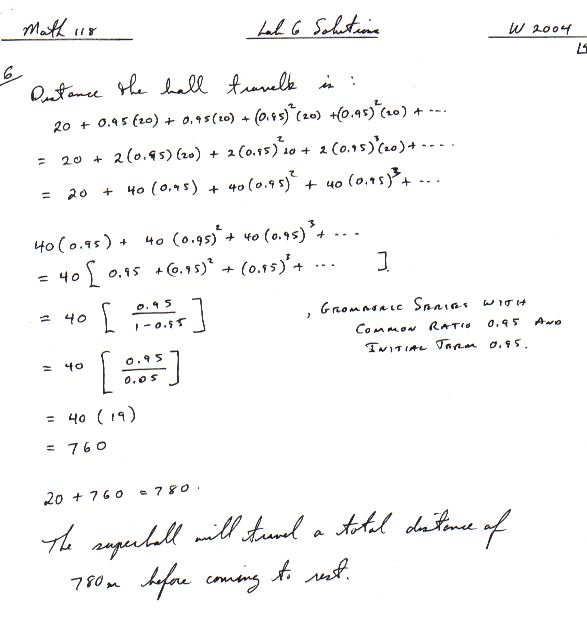 Math 118 Lab 6 Solutions W 2004
6
Distance the ball travels is :
20 + 0.95 (20) + 0.95 (20) + (0.95)² (20) + (0.95)² (20) + ...
= 20 + 2 (0.95) (20) + 2 (0.95)² 20 + 2 (0.95)³ (20) + ....
= 20 + 40 (0.95) + 40 (0.95)² + 40 (0.95)³ + ...
40 (0.95) + 40 (0.95)² + 40 (0.95)³ + ...
= 40 [ 0.95 + (0.95)² + (0.95)³ + ... ]
= 40 [ 0.95 / 1 - 0.95 ] , GEOMETRIC SERIES WITH
COMMON RATIO 0.95 AND
INITIAL TERM 0.95.
= 40 [ 0.95 / 0.05 ]
= 40 (19)
= 760
20 + 760 = 780.
The superball will travel a total distance of
780m before coming to rest.